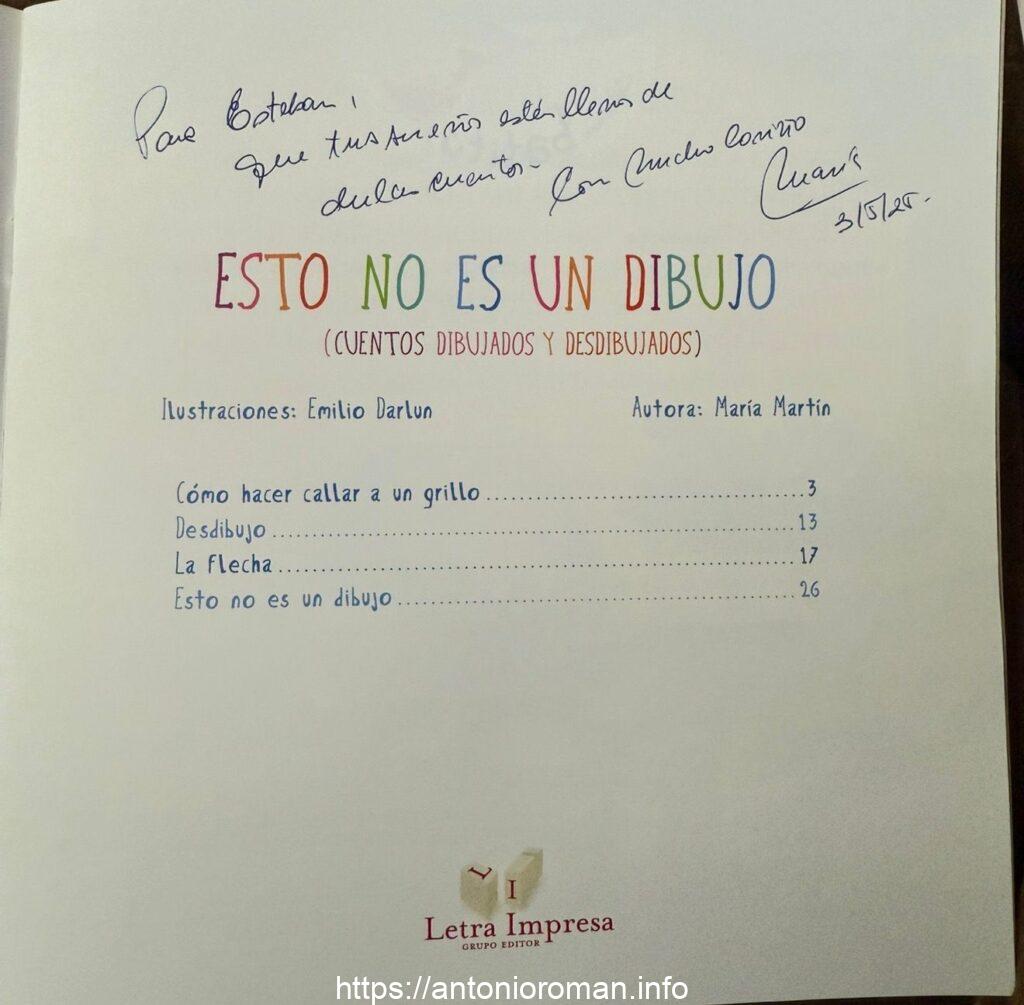 Para Esteban,
que tus sueños estén llenos de
dulces cuentos-
Con mucho cariño
María
3/5/25.
ESTO NO ES UN DIBUJO
(CUENTOS DIBUJADOS Y DESDIBUJADOS)
Ilustraciones: Emilio Darlun
Autora: María Martín
Cómo hacer callar a un grillo 3
Desdibujo 13
La flecha 17
Esto no es un dibujo 26
L I
Letra Impresa
GRUPO EDITOR
https://antonioroman.info